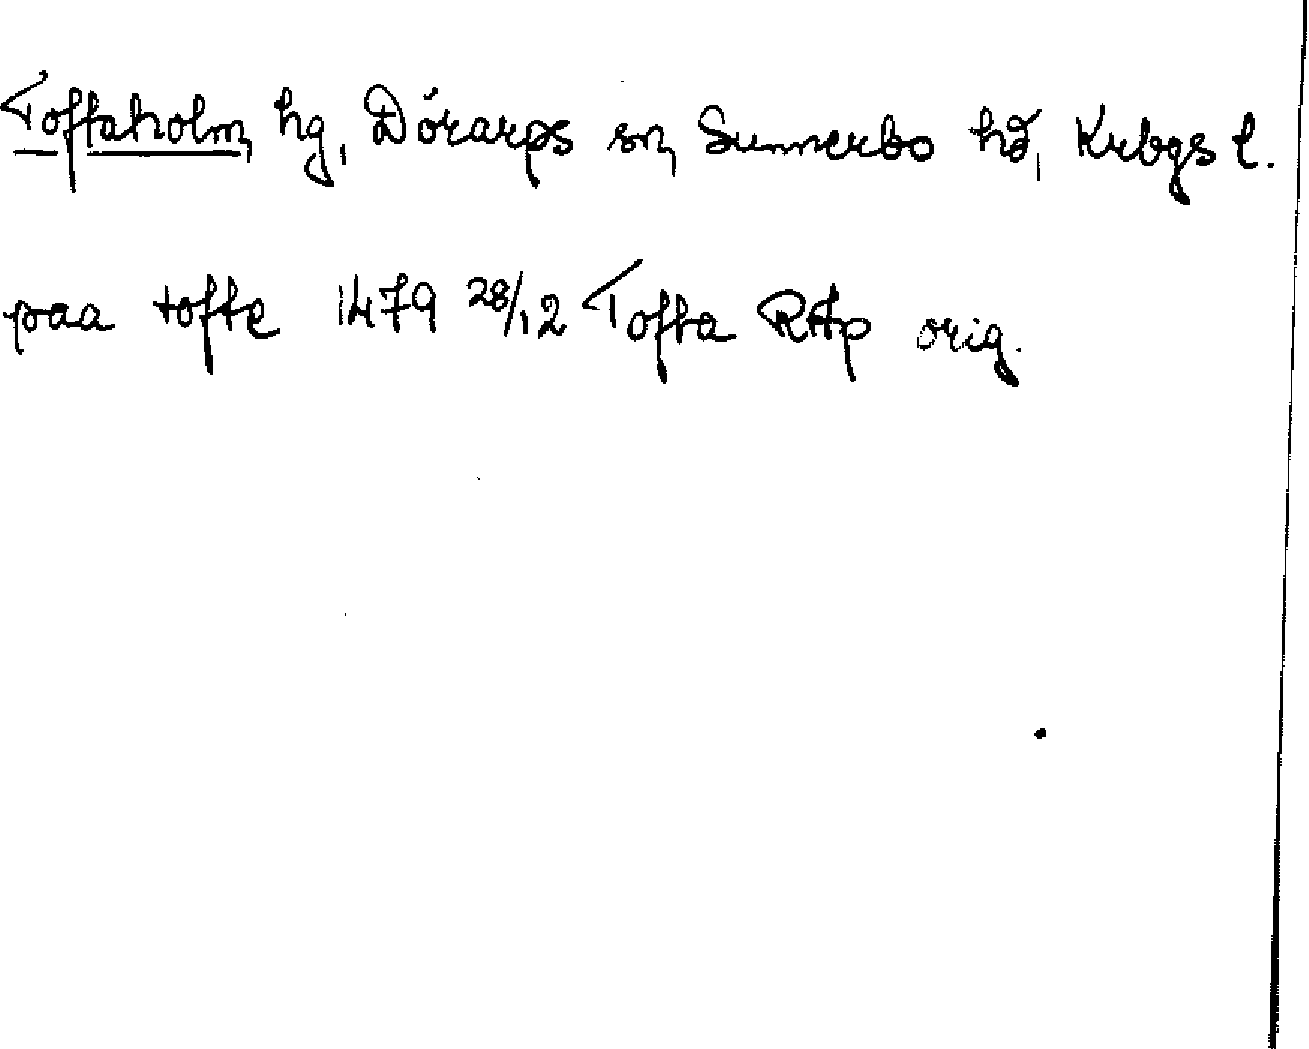 Toftaholm, hg, Dörarps sn, Sunnerbo hd, Krbgs l.
paa tofte 1479 28/12 Tofta RAp orig.